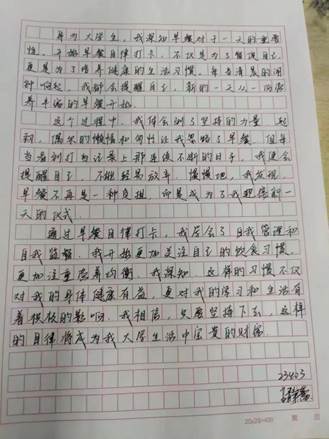 身为大学生，我深知早餐对于一天的重要
性。开始早餐自律打卡，不仅是为了管理自己，
更是为了培养健康的生活习惯。每当清晨的闹
钟响起，我都会提醒自己，新的一天从一份营
养丰富的早餐开始。
这个过程中，我体会到了坚持的力量。起
初，偶尔的懒惰和匆忙让我忽略了早餐，但每
当看到打卡记录上那连续不断的日子，我便会
提醒自己，不能轻易放弃。慢慢地，我发现，
早餐不再是一种负担，而是成为了我迎接新一
天的仪式。
通过早餐自律打卡，我学会了自我管理和
自我监督。我开始更加关注自己的饮食习惯，
更加注重营养均衡。我深知，这样的习惯不仅
对我的身体健康有益，更对我的学习和生活有
着积极的影响。我相信，只要坚持下去，这样
的自律将成为我大学生活中宝贵的财富
23403